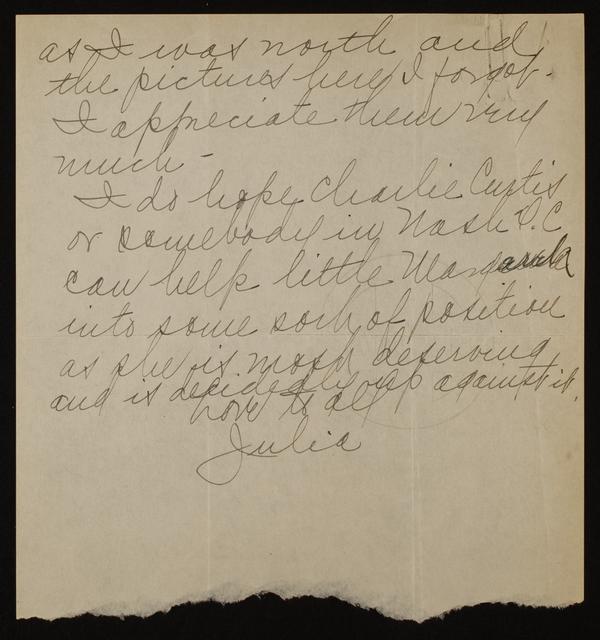 as I was north and
the pictures here I forgot -
I appreciate them very
much -
I do hope Charlie Curtis
or somebody in Wash D.C
can help little
into some sort of position
as she is most deserving
and is decidedly up against it.
Love to all
Julia